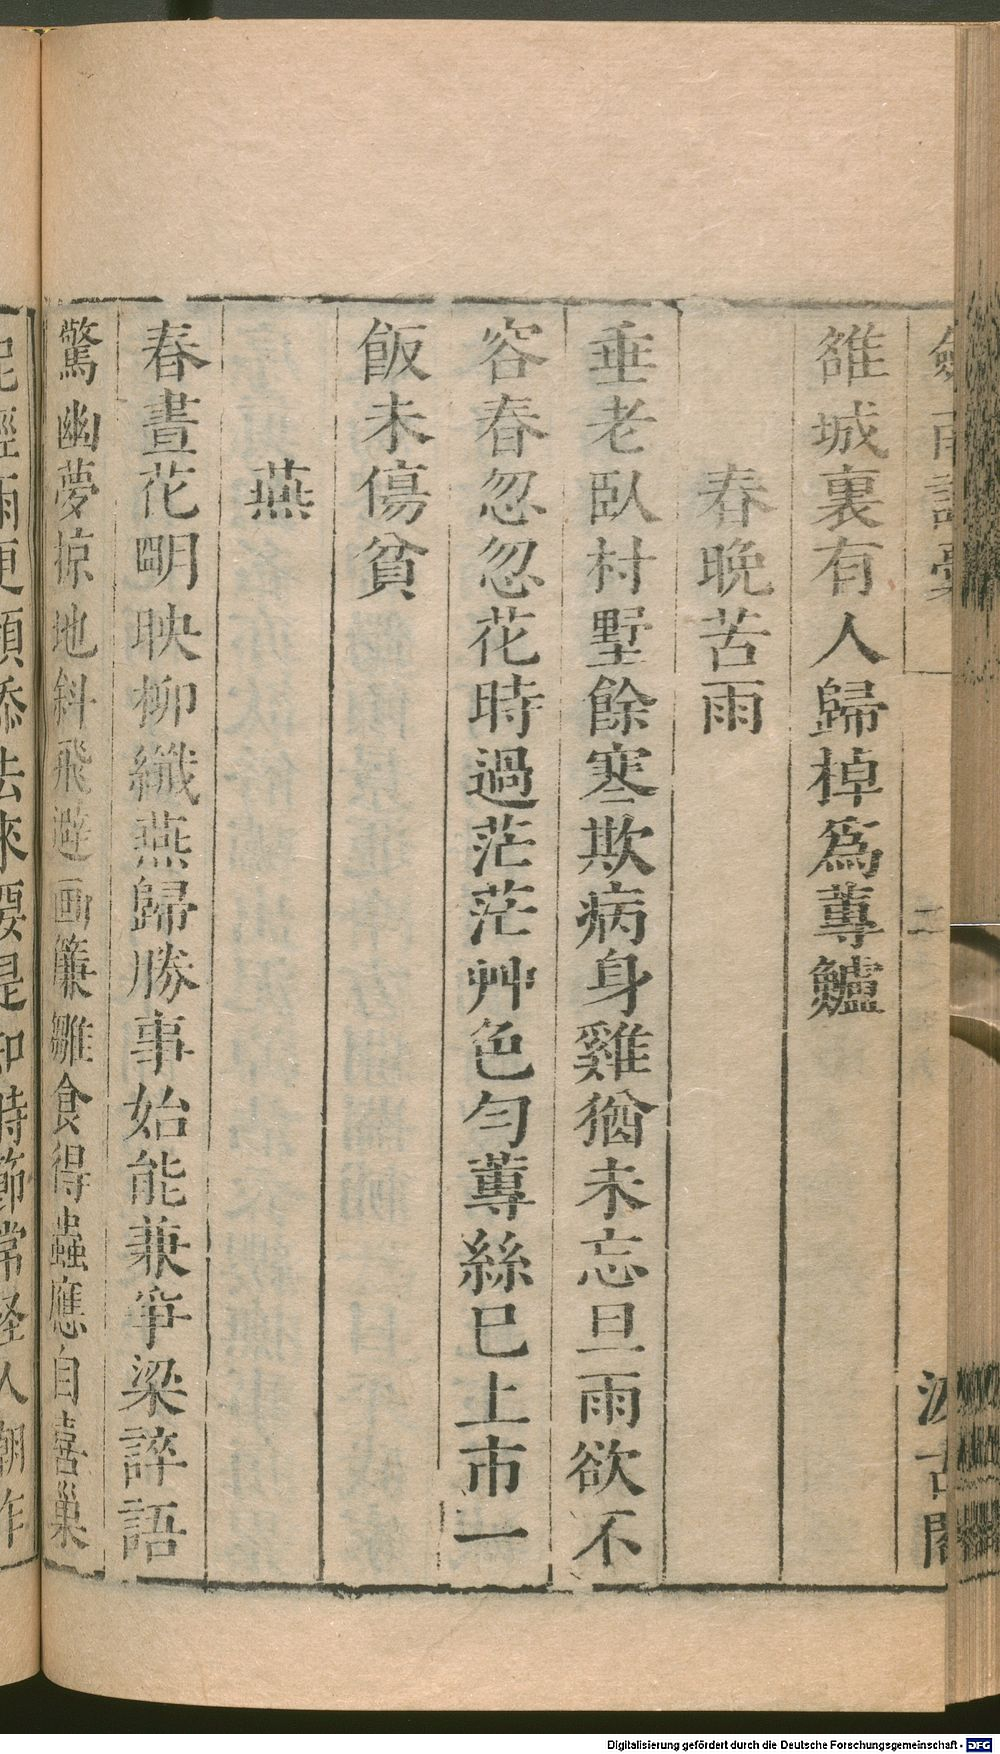 劍南詩稾 二 汲古閣
雒城裏有人歸棹爲蓴鱸
春晚苦雨
垂老臥村墅餘寒欺病身雞猶未忘旦雨欲不
容春忽忽花時過茫茫艸色勻蓴絲巳上市一
飯未傷貧
燕
春晝花明映柳纖燕歸勝事始能兼爭梁誶語
驚幽夢掠地斜飛避画簾雛食得蟲應自喜巢
泥經雨更頻添去來要是知時節常怪人嘲作
Digitalisierung gefördert durch die Deutsche Forschungsgemeinschaft - DFG